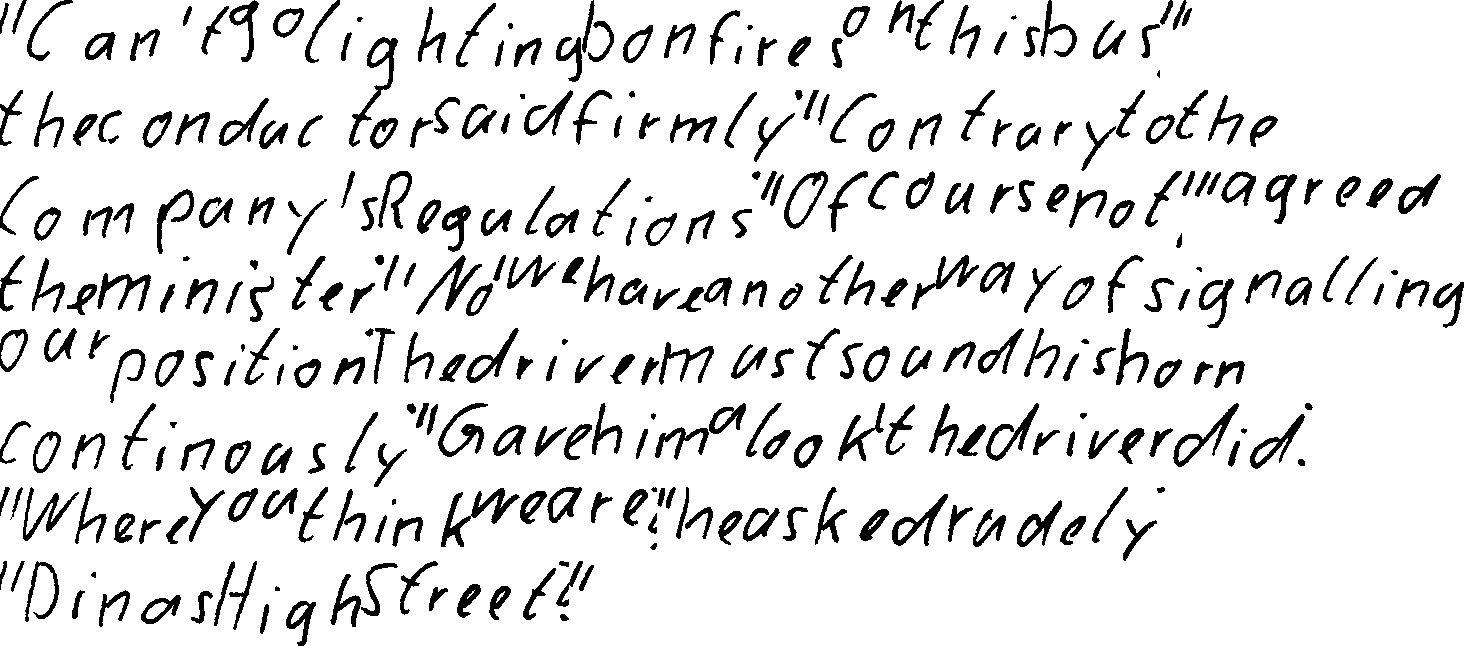 "Can't go lighting bonfires on this bus,"
the conductor said firmly. "Contrary to the
Company's Regulations." "Of course not," agreed
the minister. "No. We have another way of signalling
our position. The driver must sound his horn
continously." Gave him a look, the driver did.
"Where you think we are?" he asked rudely.
"Dinas High Street?"